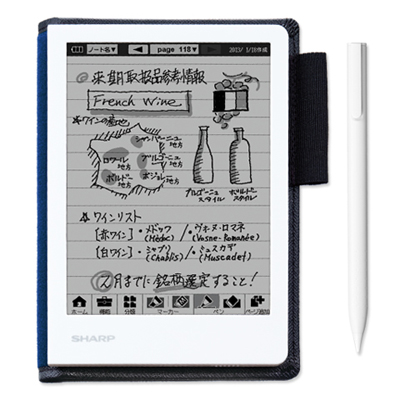 ノート名▼ ◀ page 118▼ ▶ 2013/ 1/18作成
◎来期取扱品参考情報
French Wine
☆ワインの産地
シャンパーニュ地方
ロワール地方
ブルゴーニュ地方
ボルドー地方
ボジョレー地方
ブルゴーニュスタイル
ボルドースタイル
☆ワインリスト
[赤ワイン]・メドック(Médoc)/・ヴォーヌ・ロマネ(Vosne-Romanée)
[白ワイン]・シャブリ(Chablis)/・ミュスカデ(Muscadet)
◎2月までに銘柄選定すること!
ホーム 機能 分類 マーカー ペン ページ追加
SHARP